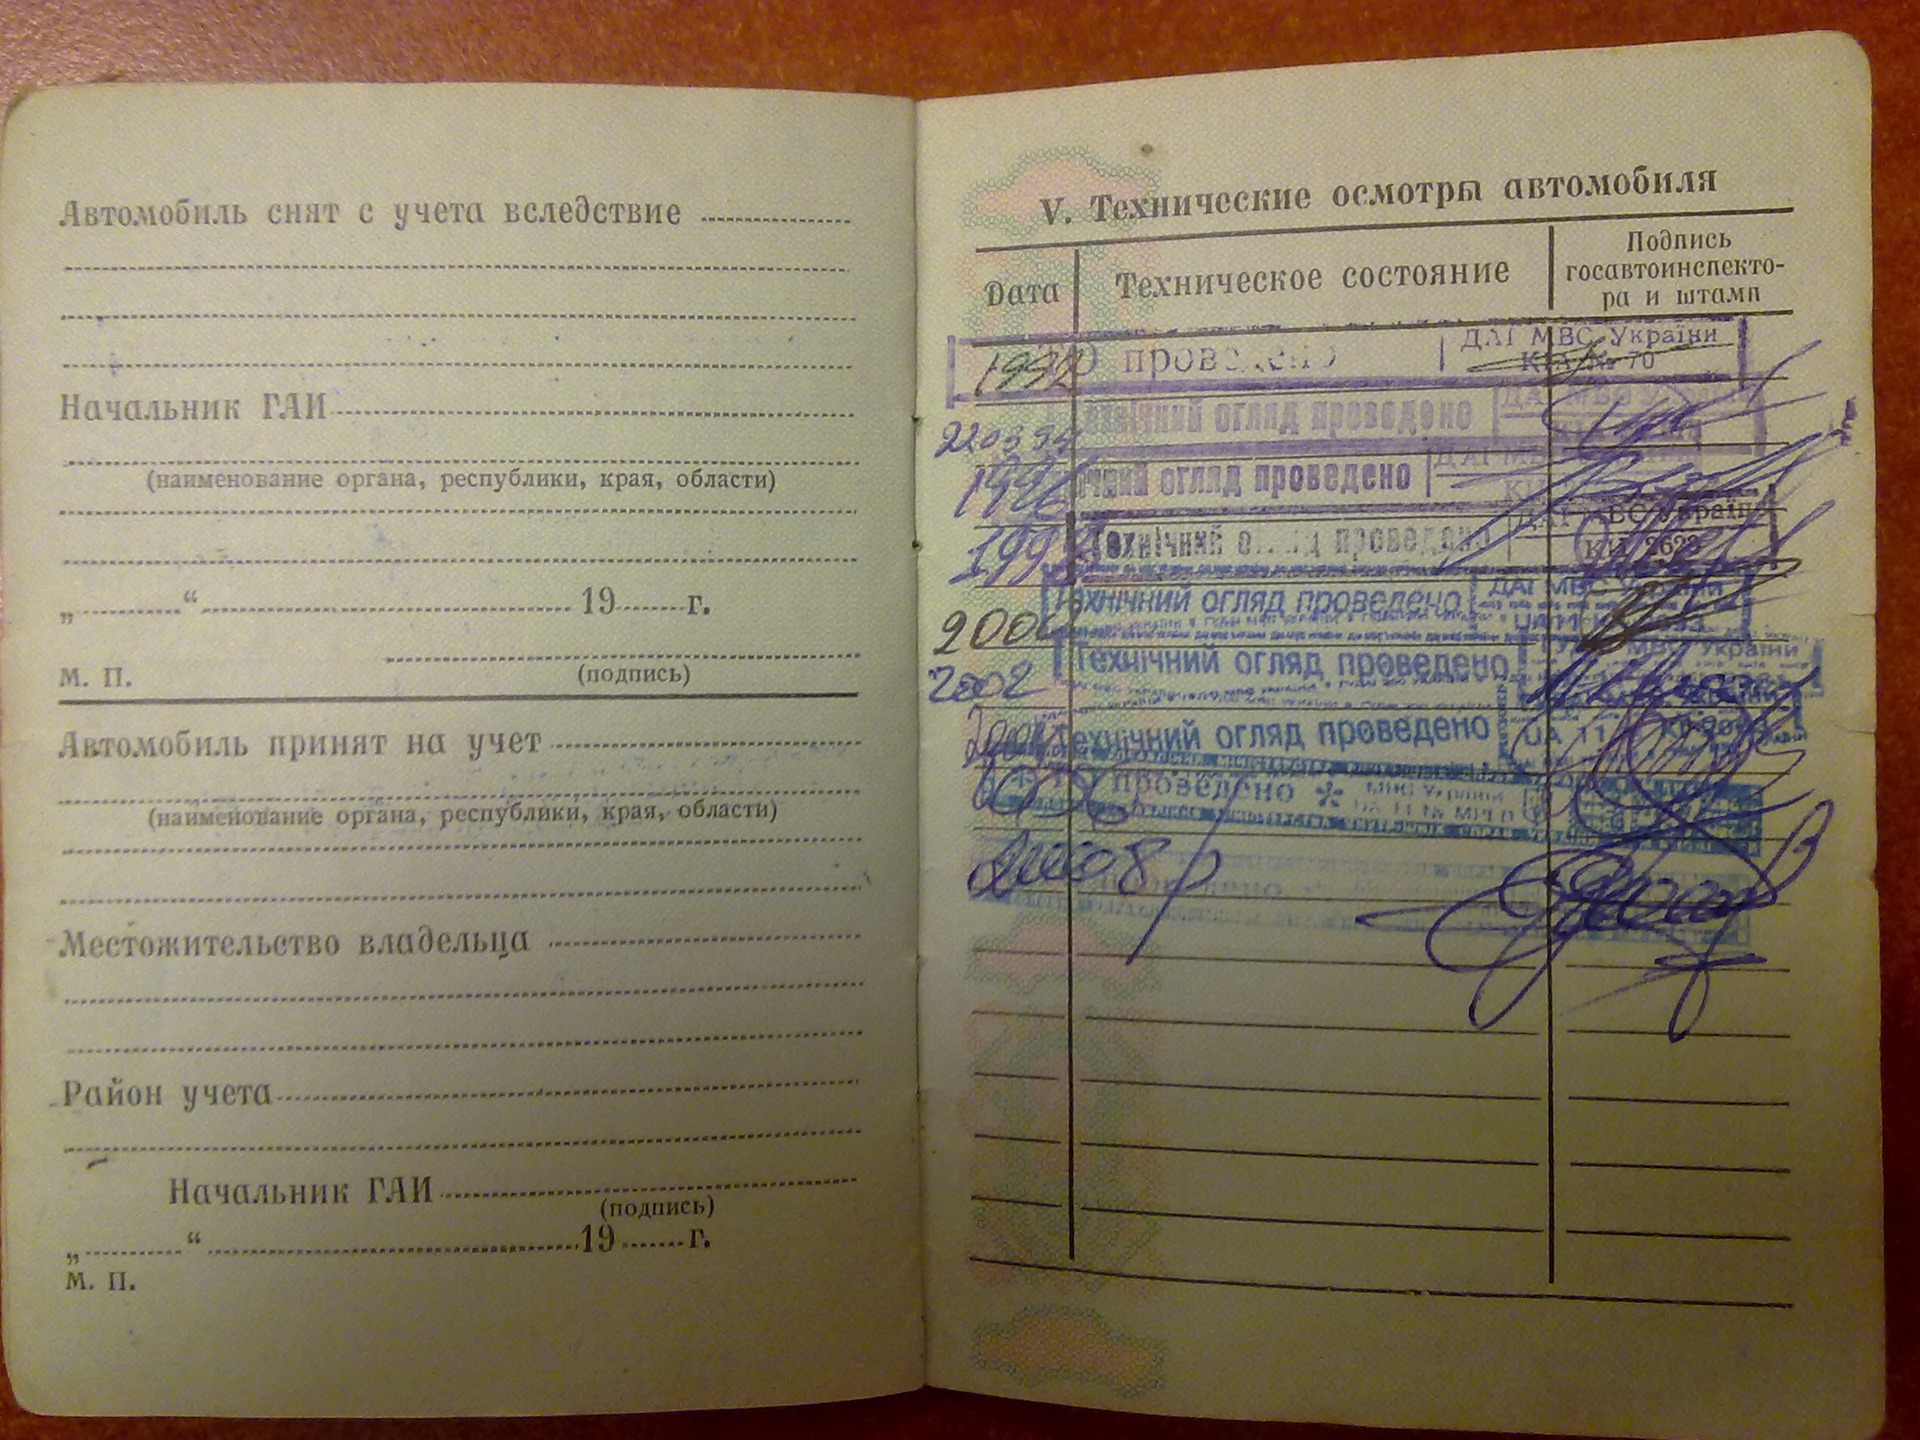 Автомобиль снят с учета вследствие
Начальник ГАИ
(наименование органа, республики, края, области)
„ “ 19 г.
М. П. (подпись)
Автомобиль принят на учет
(наименование органа, республики, края, области)
Местожительство владельца
Район учета
Начальник ГАИ
(подпись)
„ “ 19 г.
М. П.
V. Технические осмотры автомобиля
Дата Техническое состояние Подпись госавтоинспекто-
ра и штамп
1992 ТО проведено ДАІ МВС України
№ 70
22.03.94 технічний огляд проведено
1996 огляд проведено
Технічний огляд проведено ДАІ МВС України
2623
2000 Технічний огляд проведено ДАІ МВС України
2002 Технічний огляд проведено МВС України
2004 Технічний огляд проведено UA 11
проведено МВС України
2008